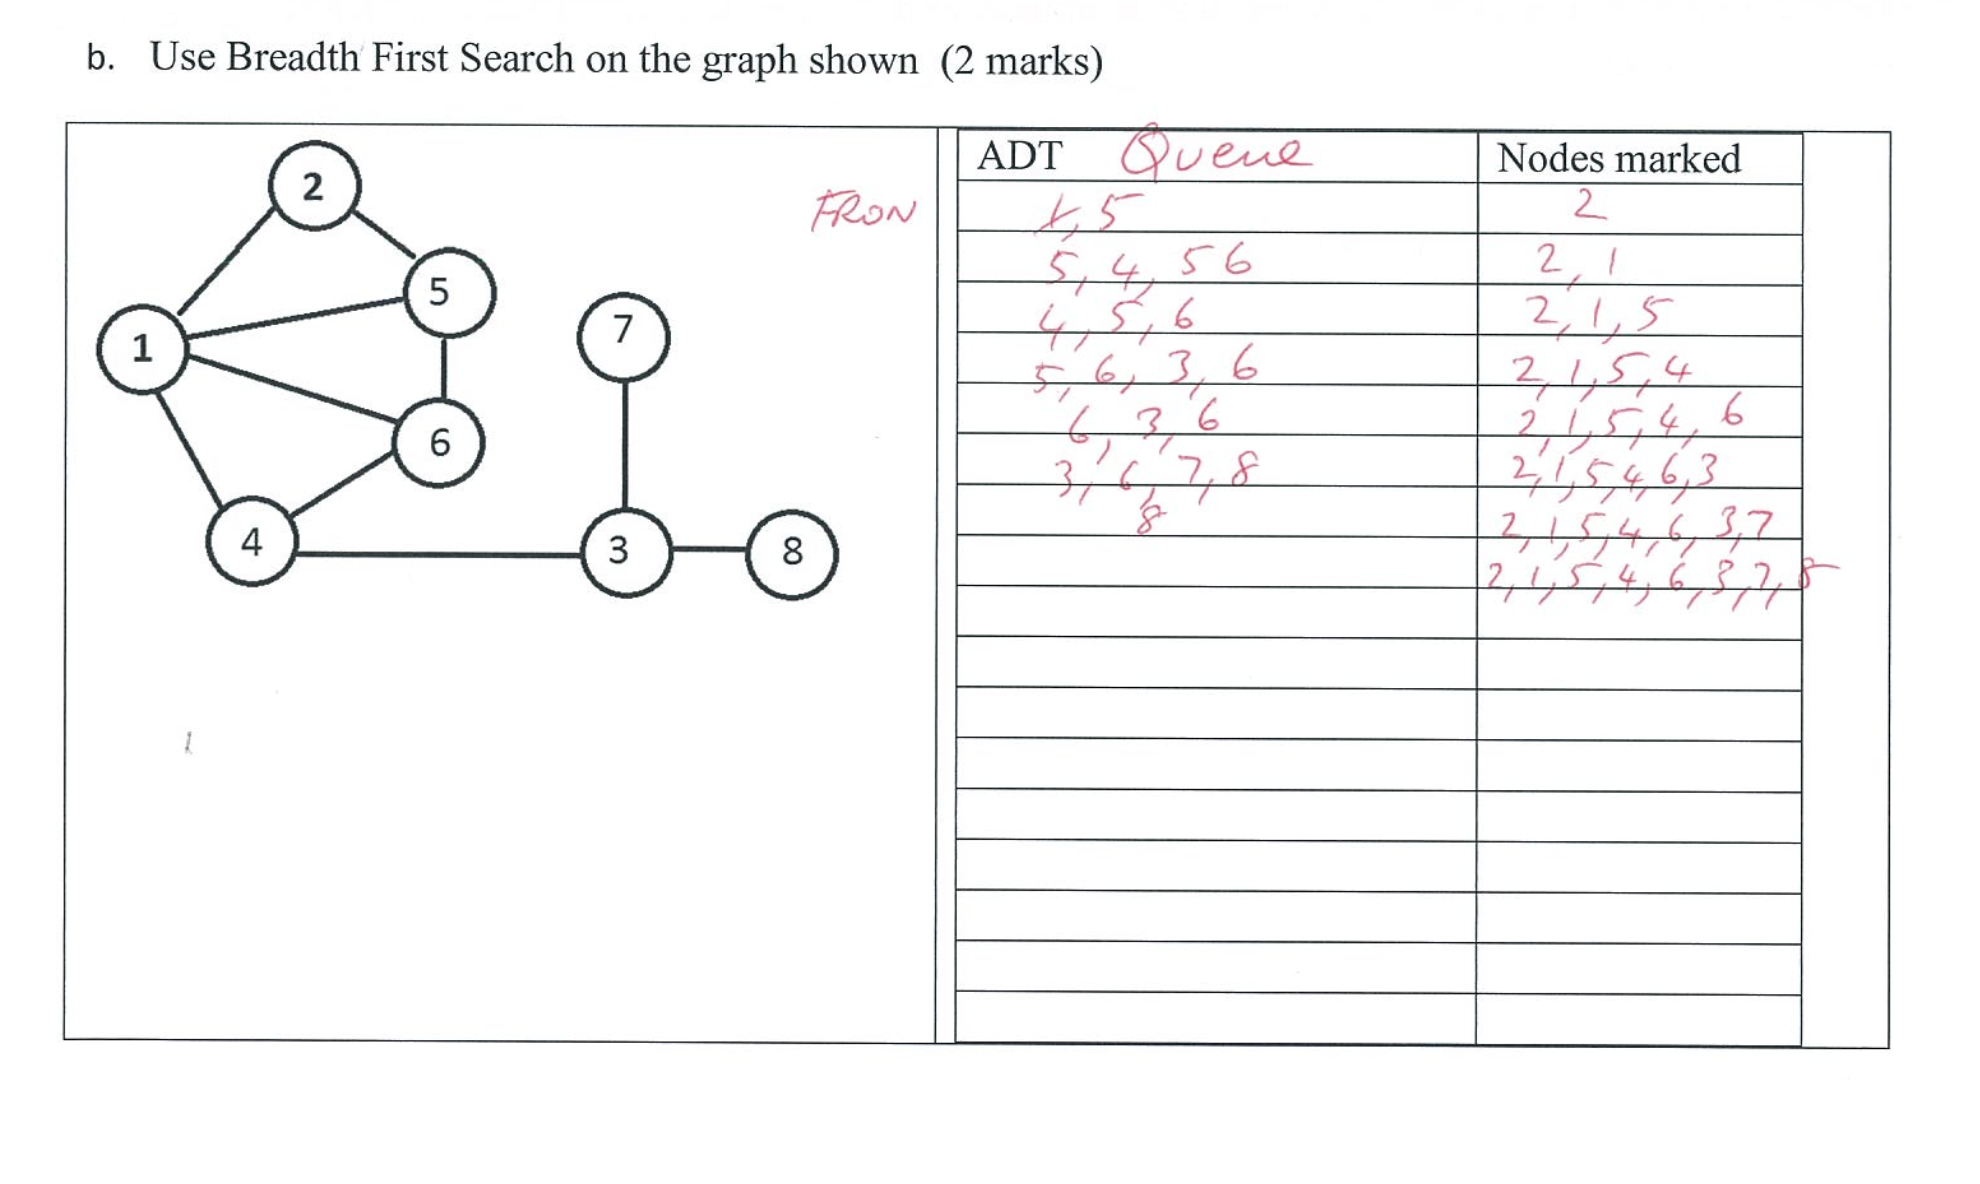 b. Use Breadth First Search on the graph shown (2 marks)
ADT Queue
Nodes marked
FRON
1, 5
2
5, 4, 5 6
2, 1
4, 5, 6
2, 1, 5
5, 6, 3, 6
2, 1, 5, 4
6, 3, 6
2, 1, 5, 4, 6
3, 6, 7, 8
2, 1, 5, 4, 6, 3
8
2, 1, 5, 4, 6, 3, 7
2, 1, 5, 4, 6, 3, 7, 8
2
5
7
1
6
4
3
8